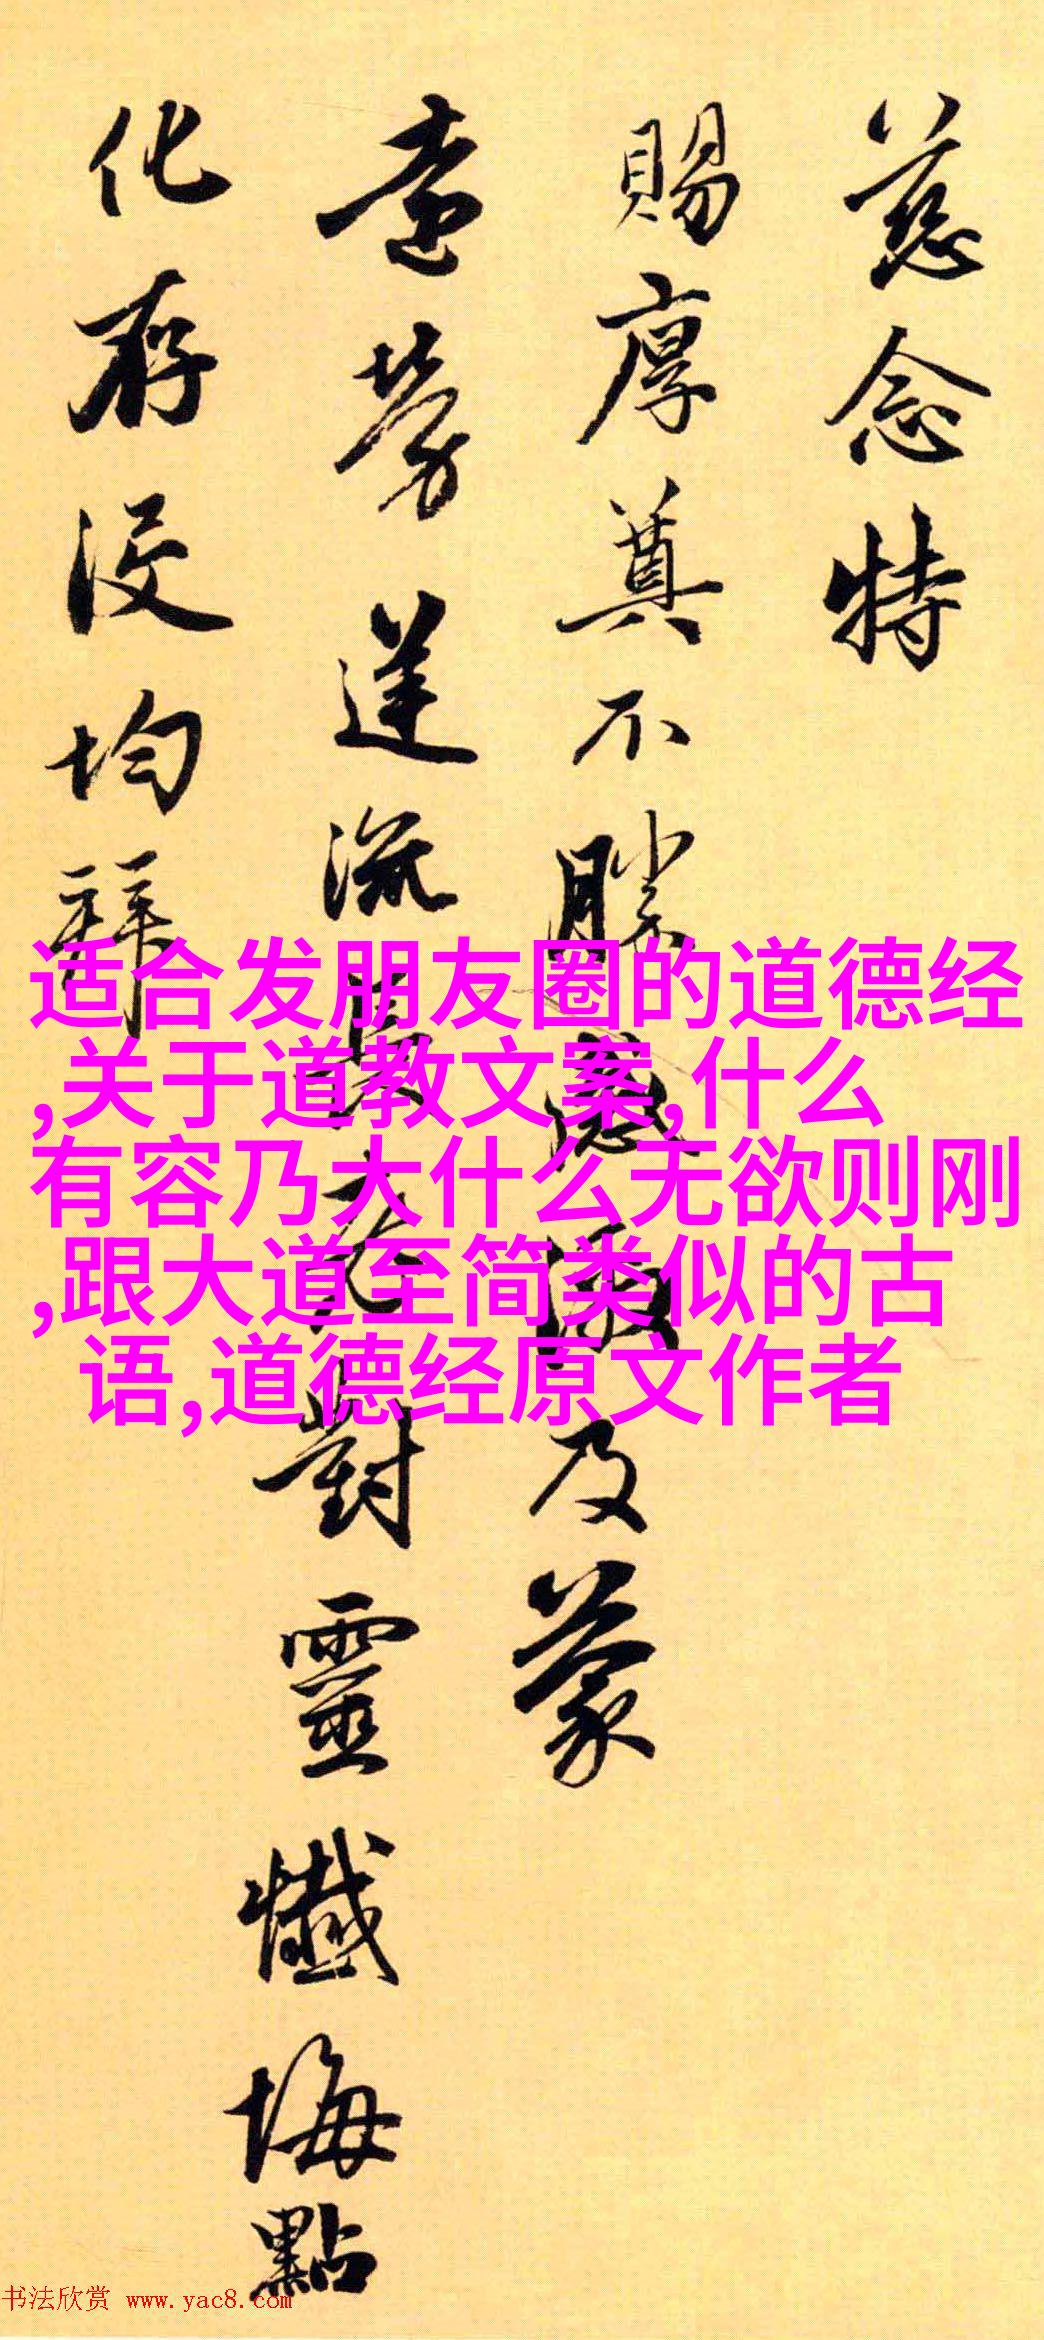 慈念特
賜厚奠不勝感激及蒙
遠勞蓮流對靈懺悔點
化存沒均拜
适合发朋友圈的道德经
,关于道教文案,什么
有容乃大什么无欲则刚
,跟大道至简类似的古
语,道德经原文作者
书法欣赏 www.yac8.com